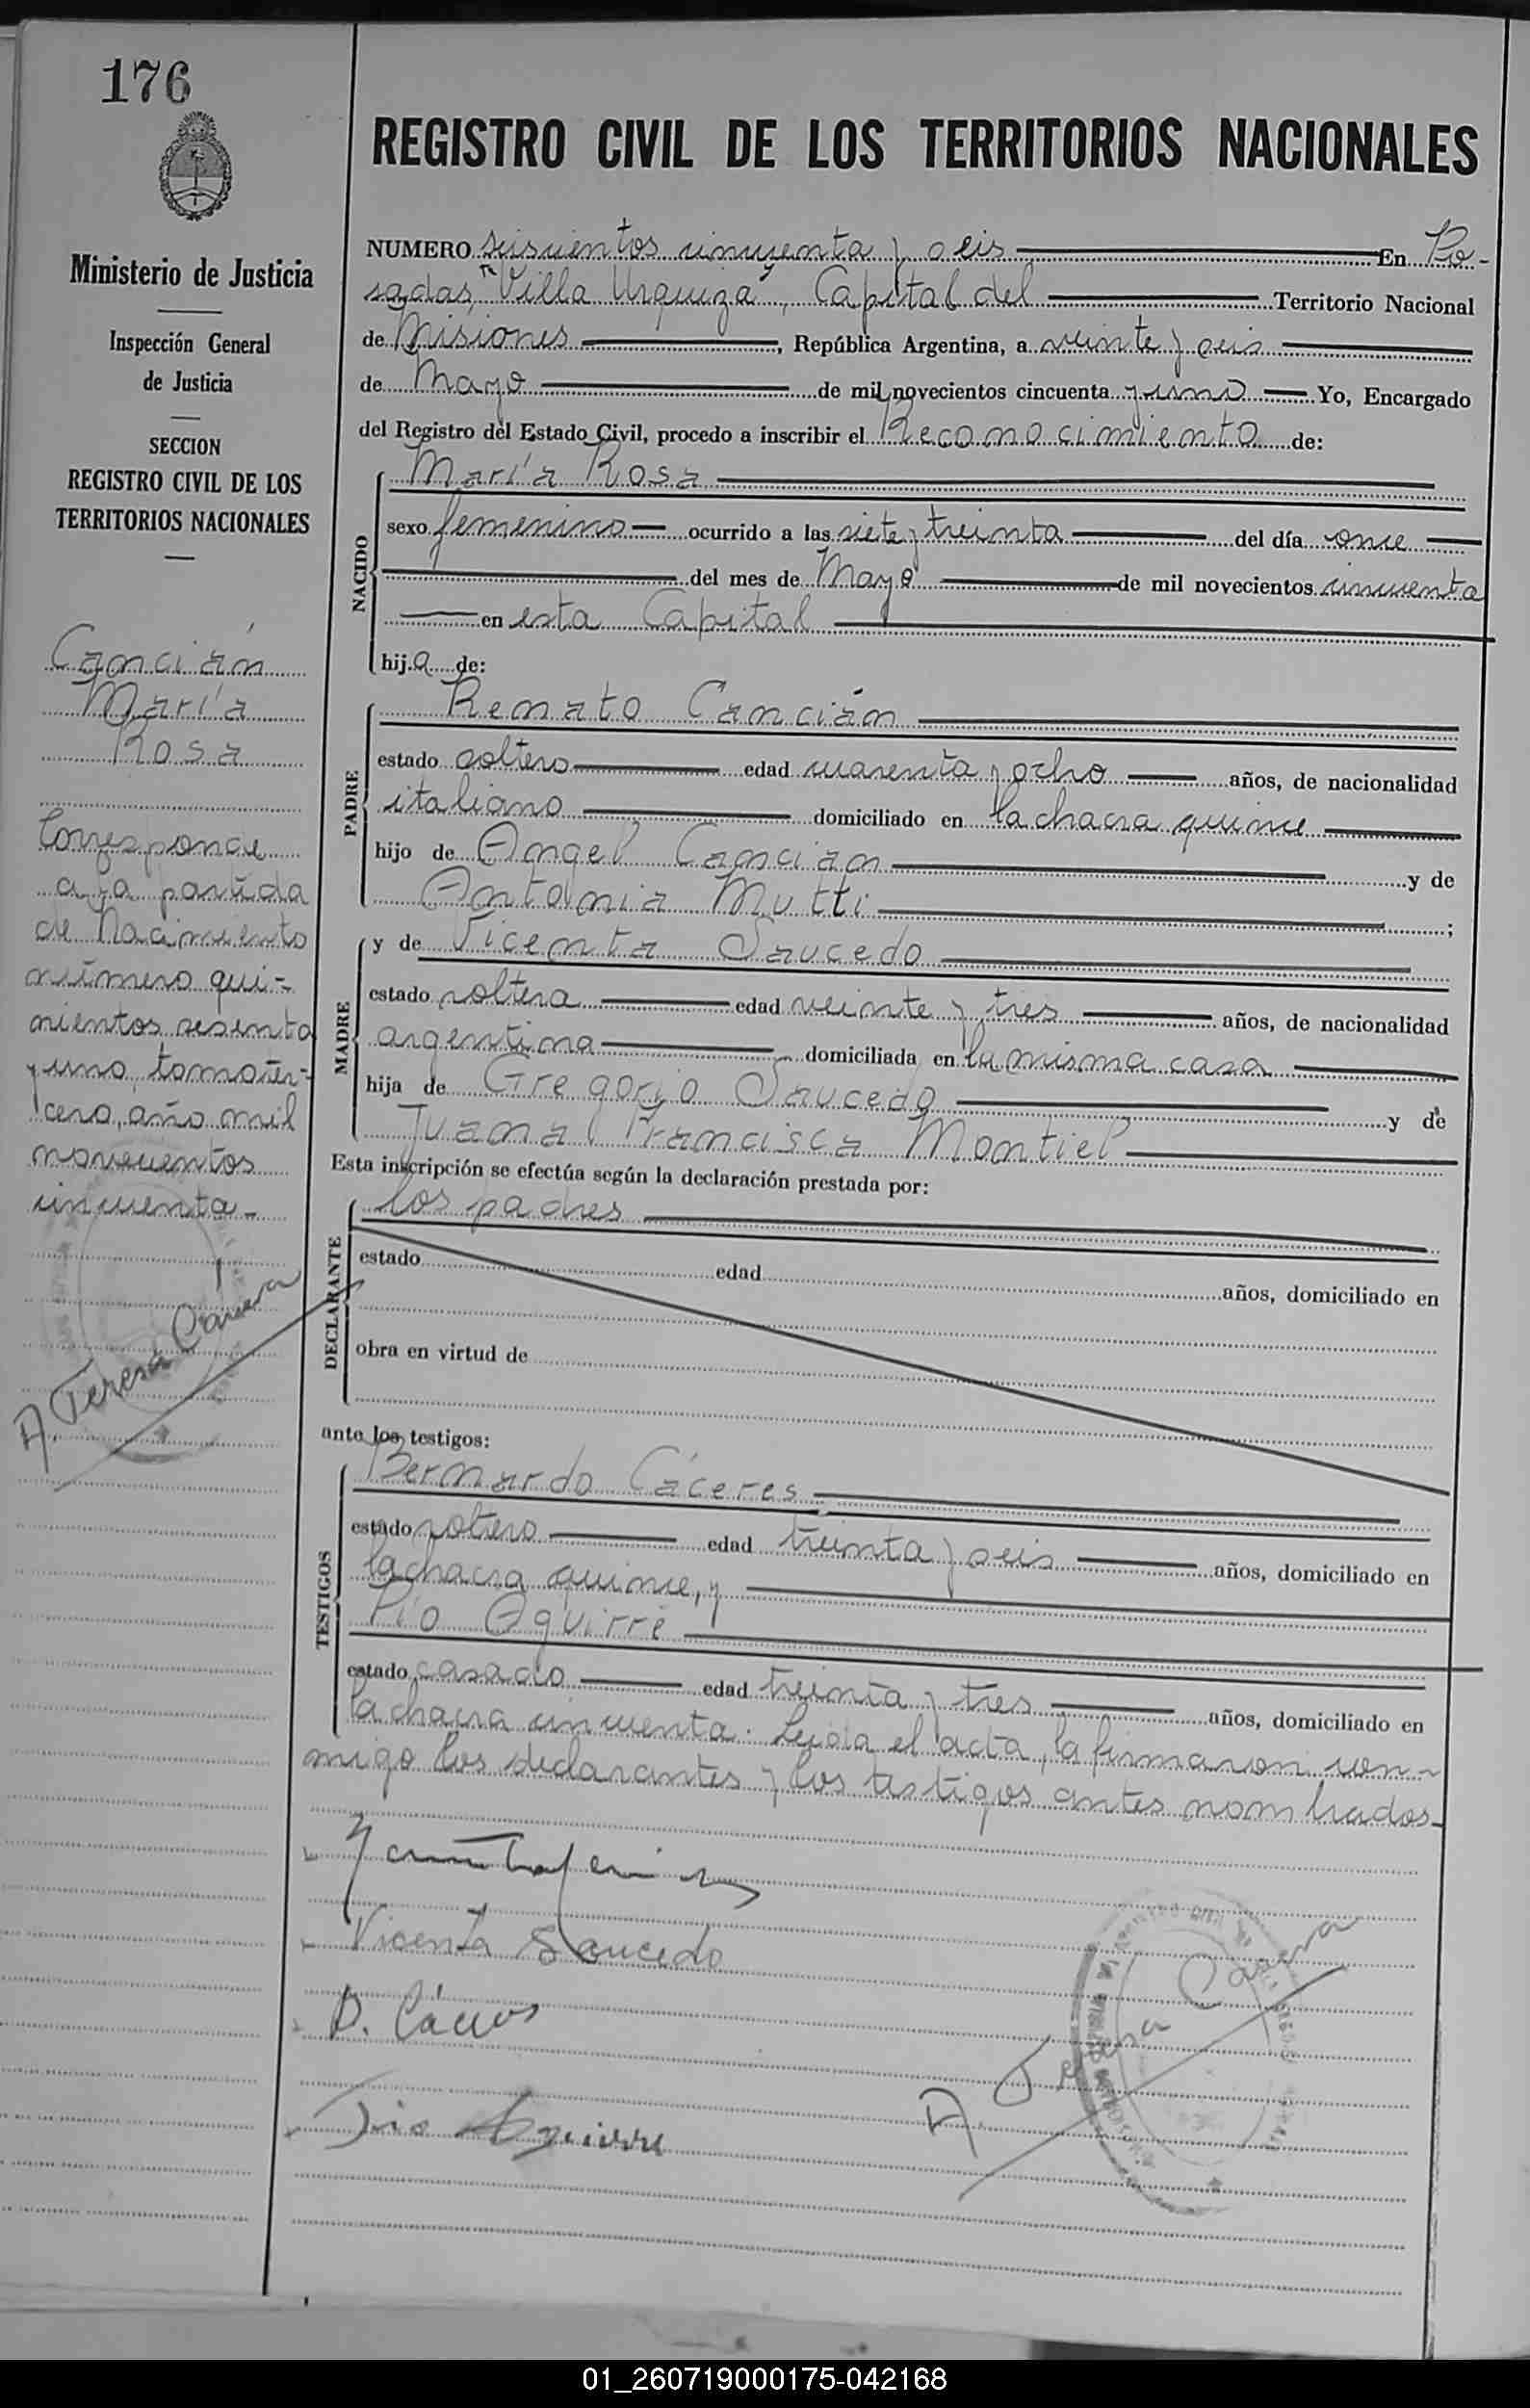 176
Ministerio de Justicia
Inspección General
de Justicia
SECCION
REGISTRO CIVIL DE LOS
TERRITORIOS NACIONALES
Cancián
María
Rosa
Corresponde
a la partida
de Nacimiento
número qui-
nientos sesenta
y uno, tomo ter-
cero, año mil
novecientos
cincuenta-
A. Teresa
REGISTRO CIVIL DE LOS TERRITORIOS NACIONALES
NUMERO seiscientos cincuenta y seis En Po-
sadas, "Villa Urquiza", Capital del Territorio Nacional
de Misiones, República Argentina, a veinte y seis
de Mayo de mil novecientos cincuenta y uno Yo, Encargado
del Registro del Estado Civil, procedo a inscribir el Reconocimiento de:
NACIDO
María Rosa
sexo femenino ocurrido a las siete y treinta del día once
del mes de Mayo de mil novecientos cincuenta
en esta Capital
hija de:
PADRE
Renato Cancián
estado soltero edad cuarenta y ocho años, de nacionalidad
italiano domiciliado en la chacra quince
hijo de Angel Cancian y de
Antonia Mutti;
MADRE
y de Vicenta Saucedo
estado soltera edad veinte y tres años, de nacionalidad
argentina domiciliada en la misma casa
hija de Gregorio Saucedo y de
Juana Francisca Montiel
Esta inscripción se efectúa según la declaración prestada por:
DECLARANTE
los padres
estado edad años, domiciliado en
obra en virtud de
ante los testigos:
TESTIGOS
Bernardo Cáceres
estado soltero edad treinta y seis años, domiciliado en
la chacra quince, y
Pío Aguirre
estado casado edad treinta y tres años, domiciliado en
la chacra cincuenta. Leida el acta, la firmaron con-
migo los declarantes y los testigos antes nombrados-
Vicenta Saucedo
Aguirre
A. Teresa
01_260719000175-042168